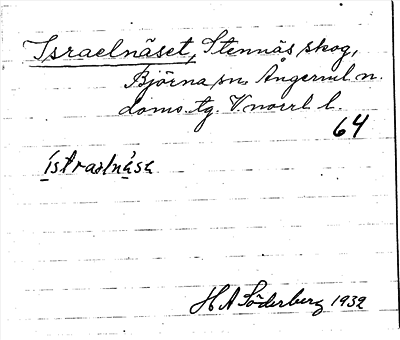 Israelnäset, Stennäs skog,
Björna sn. Ångerml n.
doms. tg. V norrl l.
64
ístraelnàsa
H A Söderberg 1932